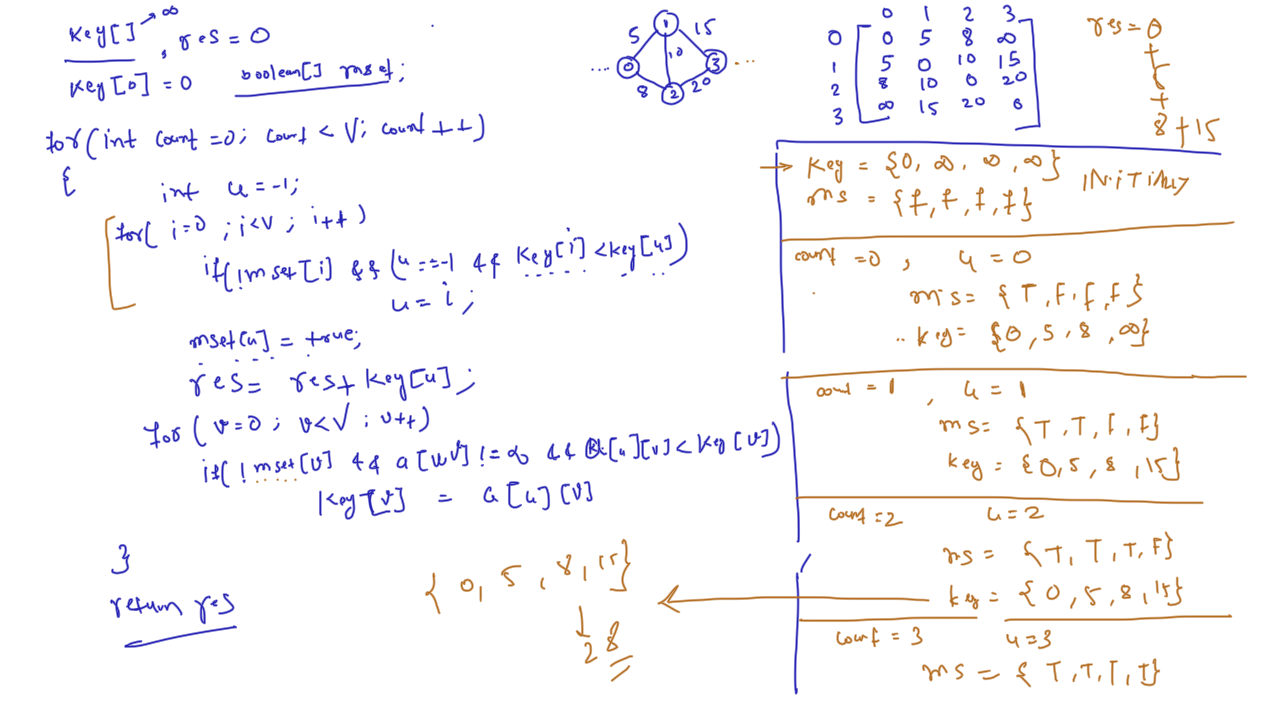 Key[] → ∞ , res = 0
Key[0] = 0 boolean[] mset;
for(int count =0; count < V; count ++)
{
int u = -1;
for( i=0 ; i<V ; i++)
if(!mset[i] && (u ==-1 && Key[i] <key[u])
u = i ;
mset[u] = true;
res = res + Key[u] ;
for ( v=0 ; v<V ; v++)
if( ! mset[v] && a[u][v] != ∞ && a[u][v] < Key[v])
Key[v] = a[u][v]
}
return res
{ 0, 5 , 8, 15}
↓
28
5 1 15
... 0 10 3 ...
8 2 20
0 1 2 3
0 0 5 8 ∞
1 5 0 10 15
2 8 10 0 20
3 ∞ 15 20 0
res = 0
+
5
+
8 + 15
→ Key = {0, ∞, ∞, ∞} INITIALLY
ms = {f, f, f, f}
count =0 , u = 0
ms = {T, F, f, F}
.. key = {0, 5, 8, ∞}
count = 1 , u = 1
ms = {T, T, F, F}
key = {0, 5, 8, 15}
count =2 u = 2
ms = {T, T, T, F}
key = {0, 5, 8, 15}
count = 3 u=3
ms = { T, T, T, T}